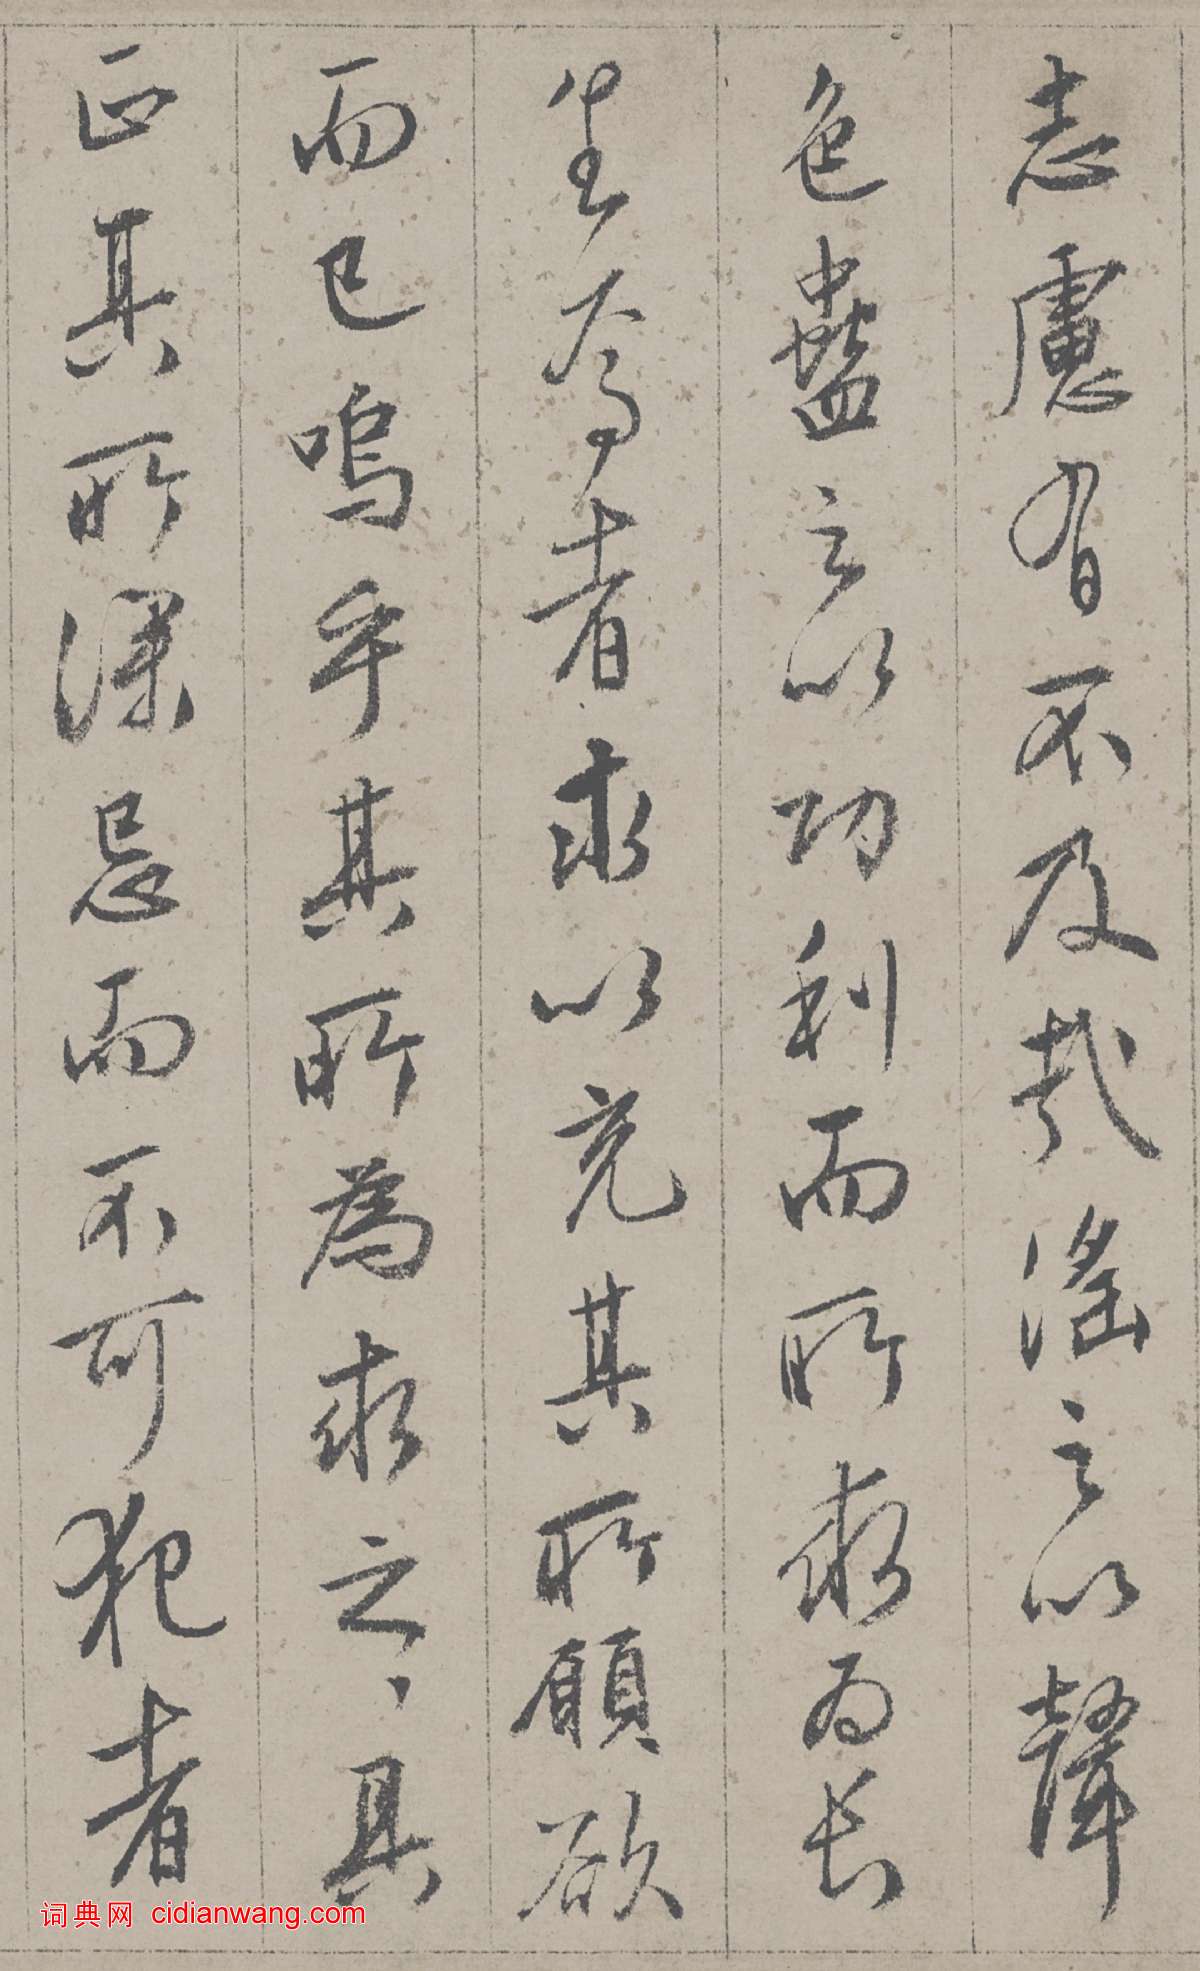 志慮有不及哉淫之以聲
色蠱之以功利而所求為长
生者求以充其所願欲
而已嗚乎其所為求之之具
正其所深忌而不可犯者
词典网 cidianwang.com